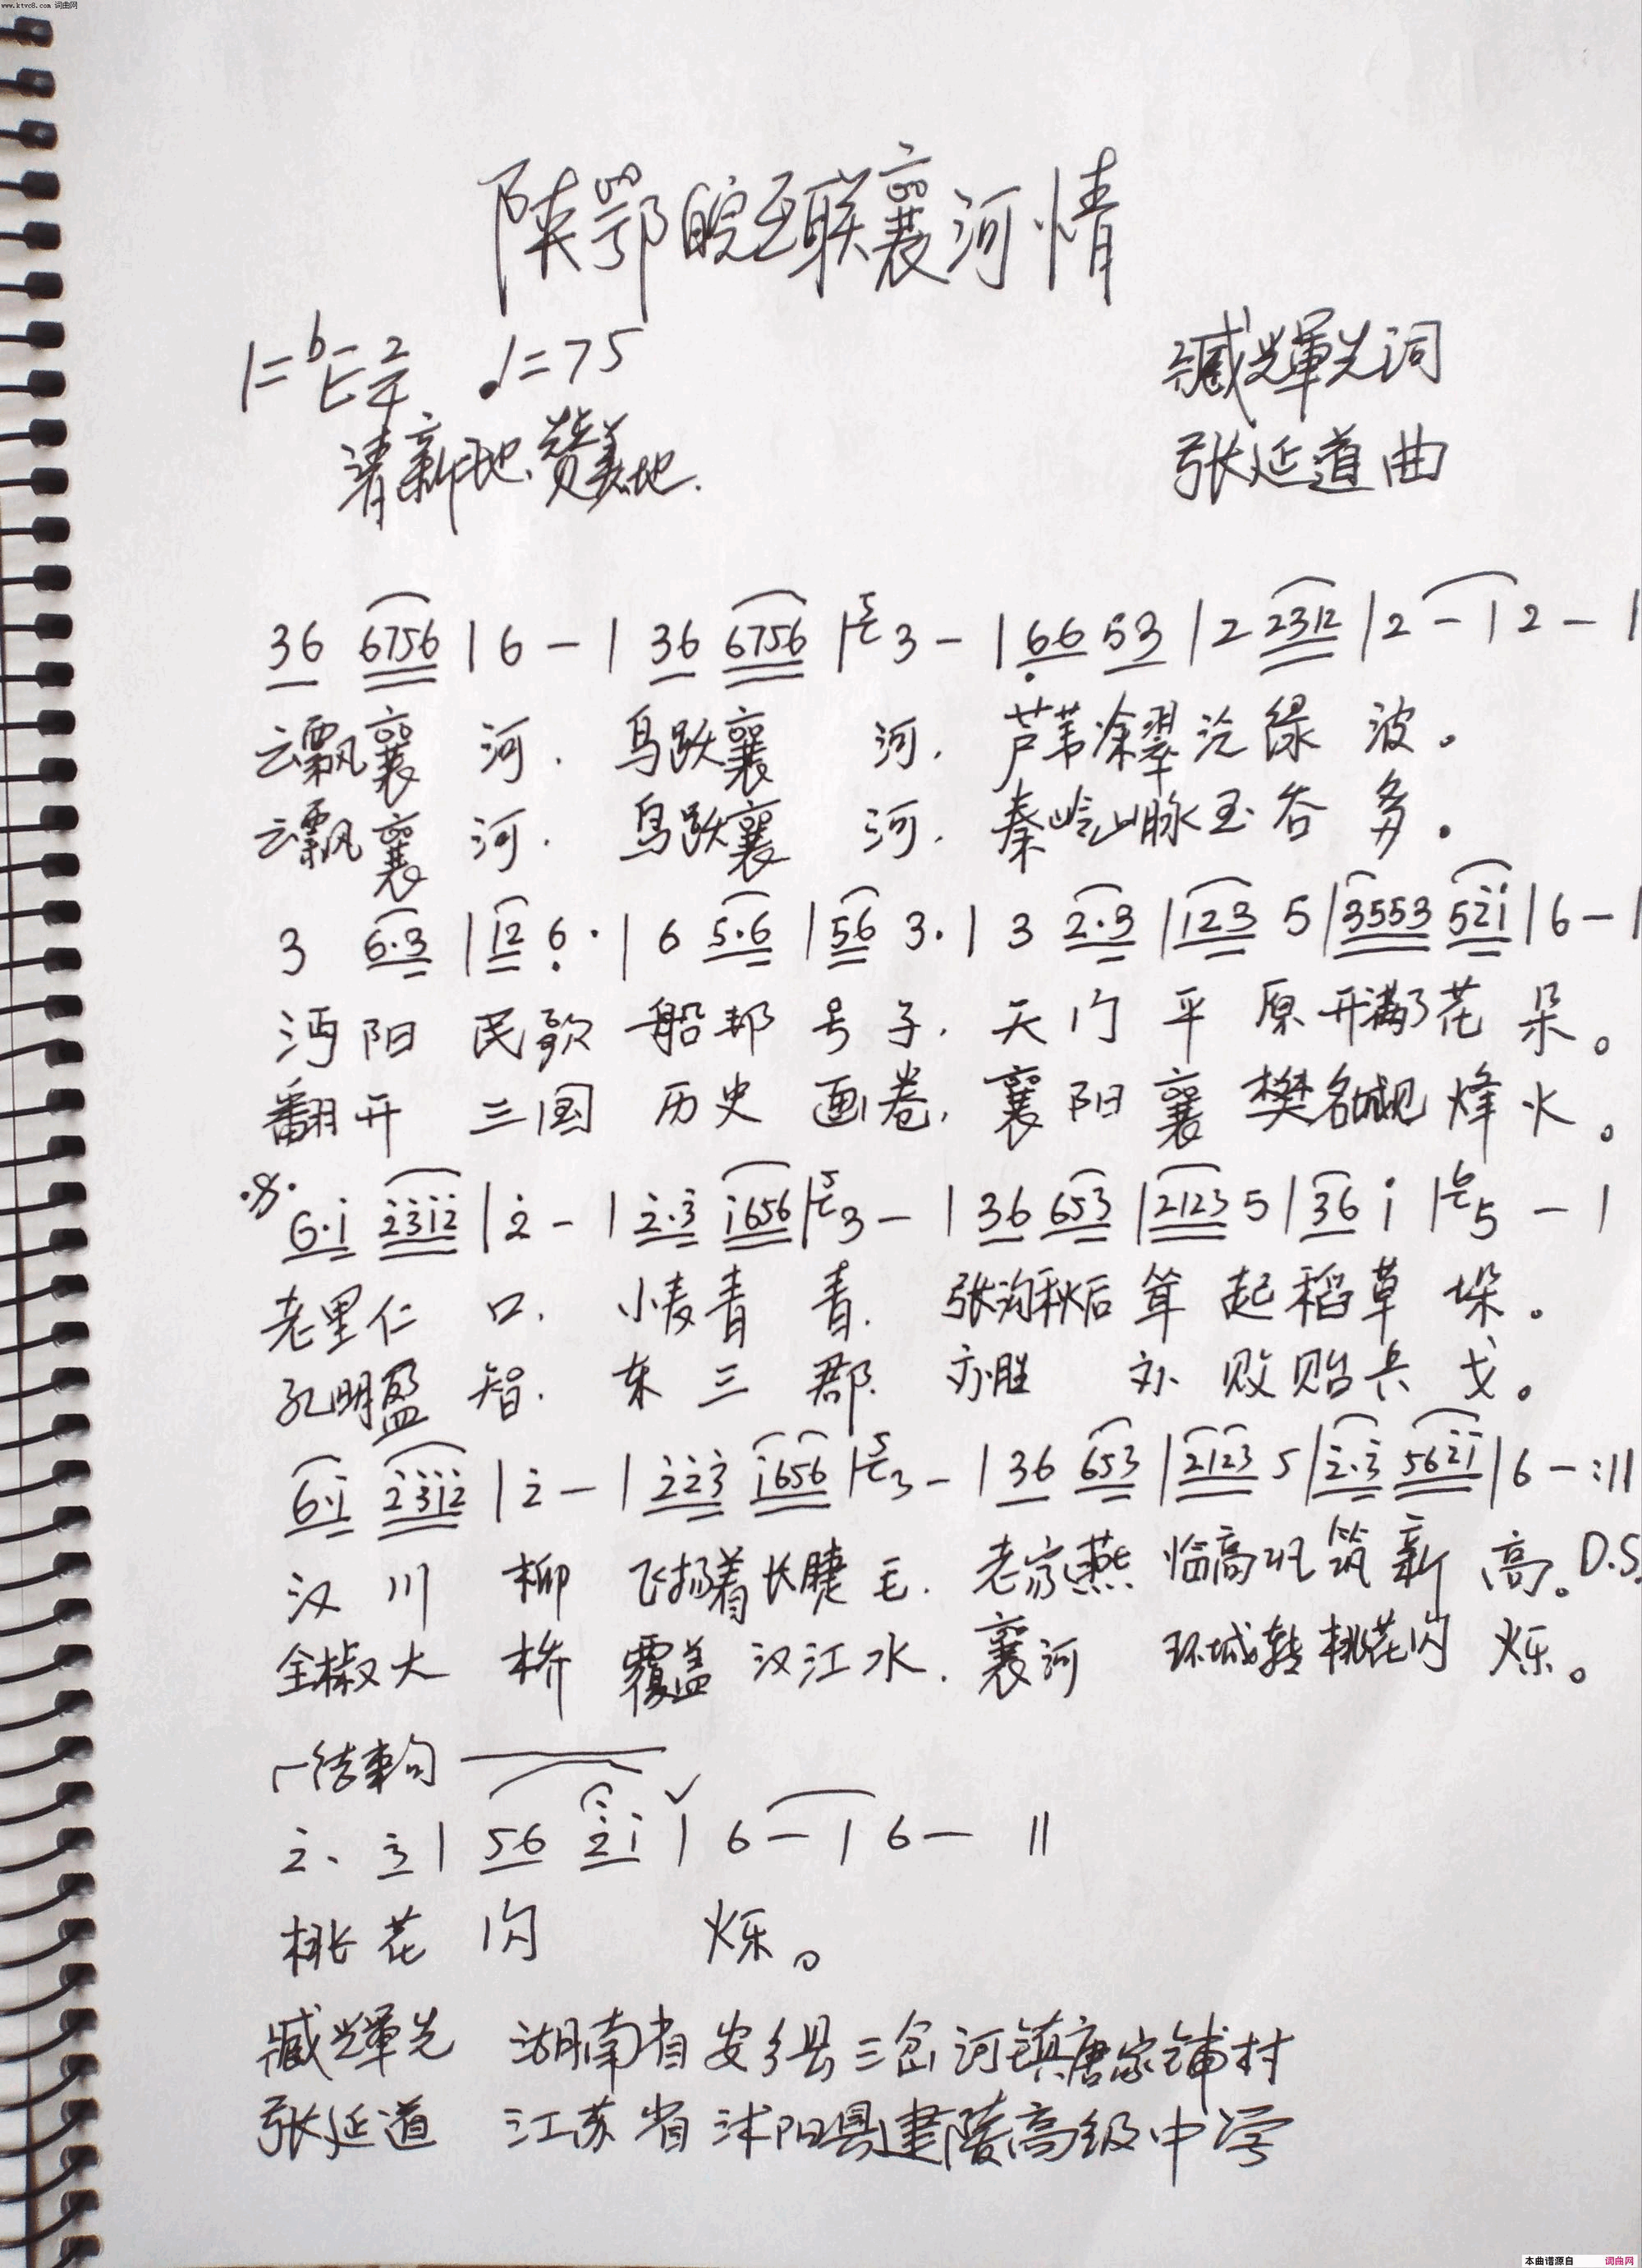 www.ktvc8.com 词曲网
陕鄂皖互联襄河情
1=bE 2/4 ♩=75
臧輝光词
清新地、赞美地.
张延道曲
36 6756 | 6 - | 36 6756 | 5 3 - | 66 53 | 2 2312 | 2 - | 2 - |
云飘襄 河. 鸟跃襄 河. 芦苇涂翠泛绿 波。
云飘襄 河. 鸟跃襄 河. 秦岭山脉玉谷 多。
3 6·3 | 12 6· | 6 5·6 | 56 3· | 3 2·3 | 123 5 | 3553 521 | 6 - |
沔阳 民歌 船邦 号子. 天门 平 原开满了花 朵。
翻开 三国 历史 画卷. 襄阳襄 樊名城现烽火。
6·i 2312 | 2 - | 2·3 i656 | 5 3 - | 36 653 | 2123 5 | 36 i | 6 5 - |
老里仁 口. 小麦青 青. 张沟秋后耸 起稻草 垛。
孔明盈 智. 东三 郡. 亦胜 亦 败贻兵 戈。
6·i 2312 | 2 - | 223 i656 | 5 3 - | 36 653 | 2123 5 | 2·3 562i | 6 - :||
汉川 柳 飞扬着长睫 毛. 老家燕 临高 筑新 高。D.S.
全椒大 桥 覆盖汉江水. 襄河 环城转桃花闪 烁。
结束句
2· 3 | 56 2i | 6 - | 6 - ||
桃花 闪 烁。
臧輝光 湖南省安乡县三岔河镇唐家铺村
张延道 江苏省沭阳县建陵高级中学
本曲谱源自 词曲网